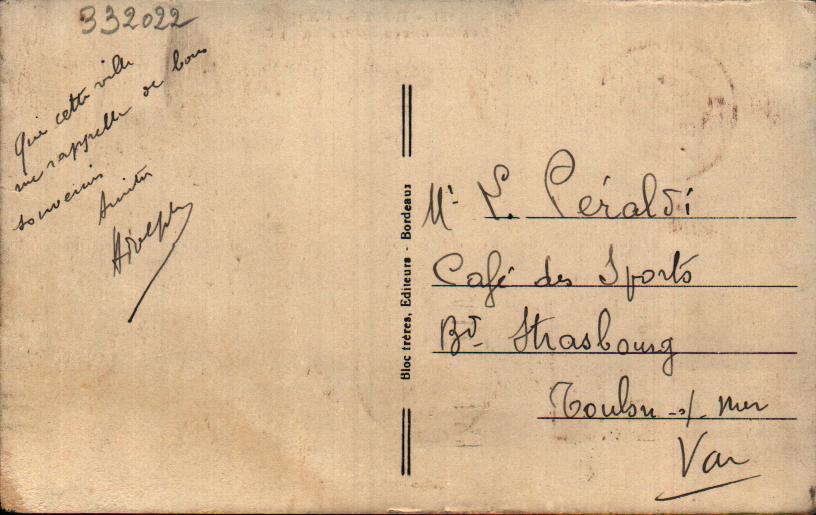 332022
Que cette ville
me rappelle de bons
souvenirs
Amitiés
Adolphe
Bloc frères, Editeurs - Bordeaux
Mr L. Péraldi
Café des Sports
Bd Strasbourg
Toulon -s/- mer
Var